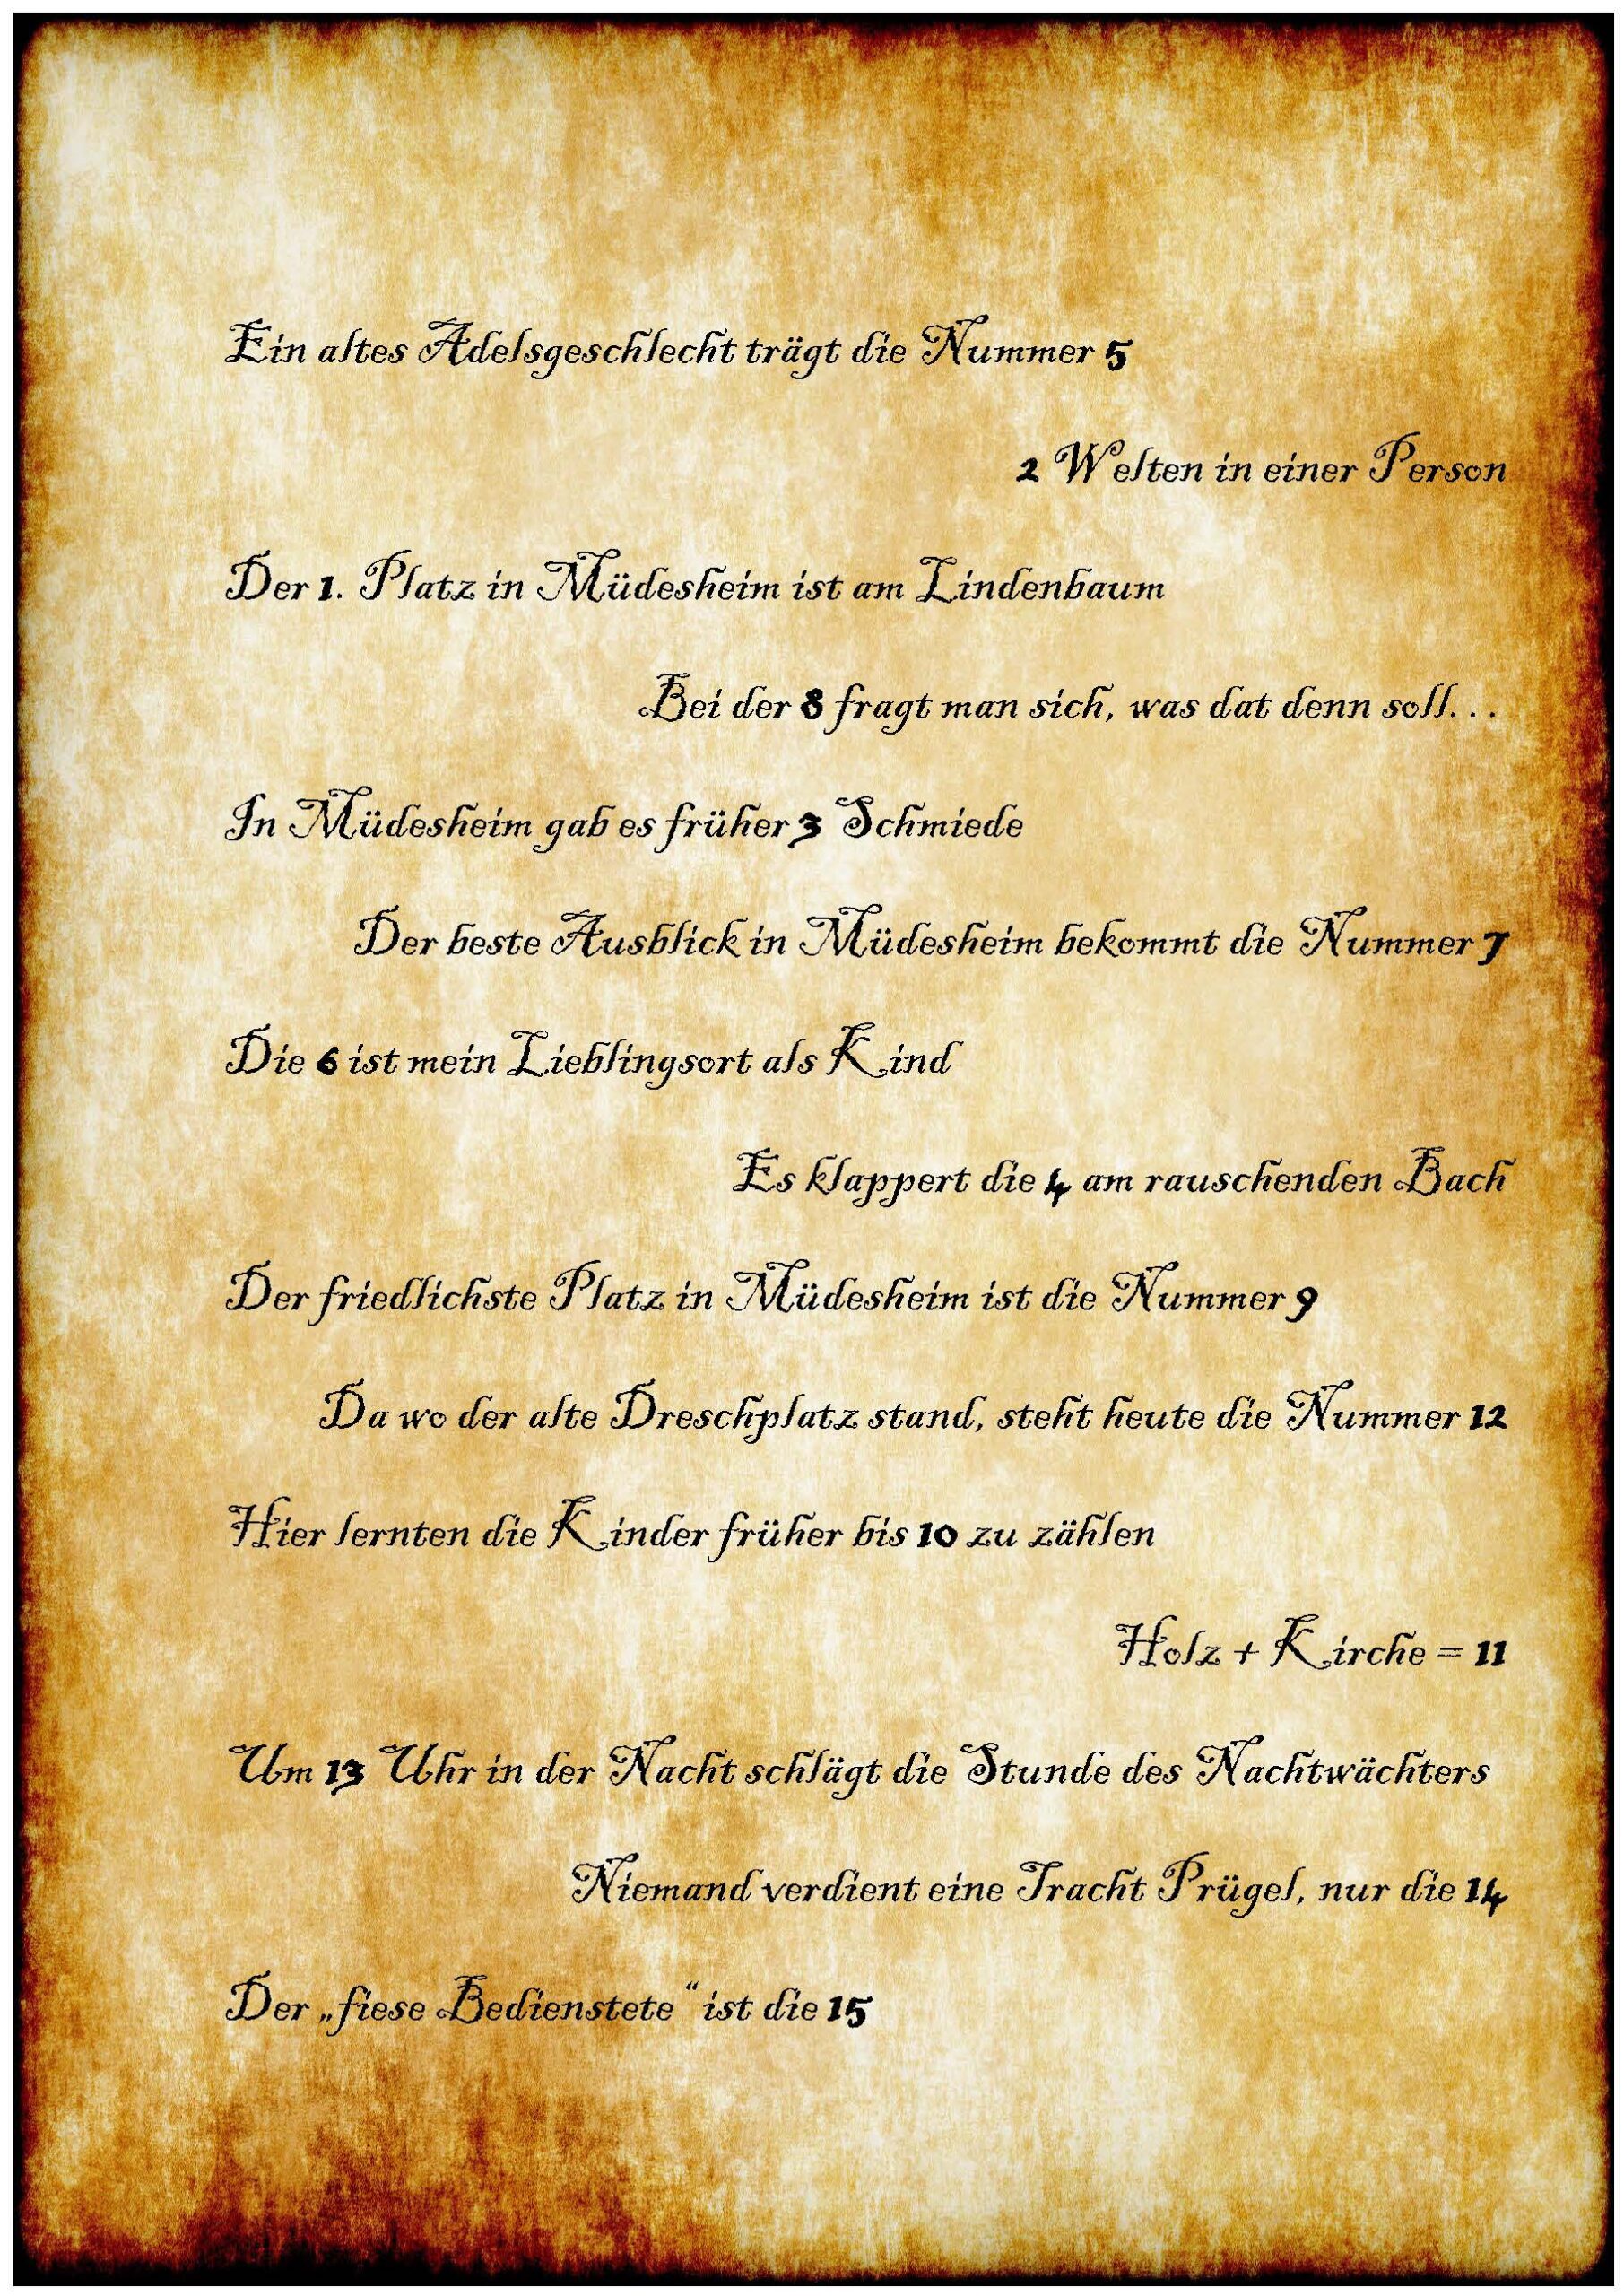 Ein altes Adelsgeschlecht trägt die Nummer 5
2 Welten in einer Person
Der 1. Platz in Müdesheim ist am Lindenbaum
Bei der 8 fragt man sich, was dat denn soll...
In Müdesheim gab es früher 3 Schmiede
Der beste Ausblick in Müdesheim bekommt die Nummer 7
Die 6 ist mein Lieblingsort als Kind
Es klappert die 4 am rauschenden Bach
Der friedlichste Platz in Müdesheim ist die Nummer 9
Da wo der alte Dreschplatz stand, steht heute die Nummer 12
Hier lernten die Kinder früher bis 10 zu zählen
Holz + Kirche = 11
Um 13 Uhr in der Nacht schlägt die Stunde des Nachtwächters
Niemand verdient eine Tracht Prügel, nur die 14
Der „fiese Bedienstete“ ist die 15